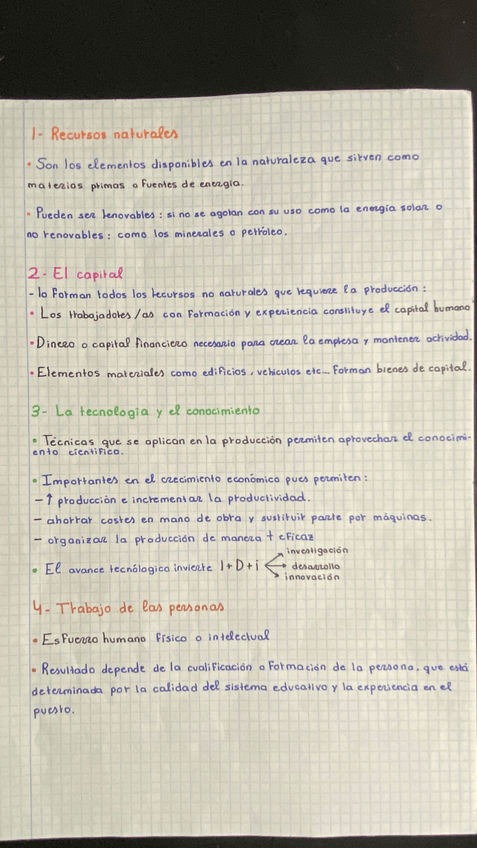 1- Recursos naturales
• Son los elementos disponibles en la naturaleza que sirven como
materias primas o fuentes de energía.
• Pueden ser renovables: si no se agotan con su uso como la energía solar o
no renovables: como los minerales o petróleo.
2- El capital
- lo forman todos los recursos no naturales que requiere la producción:
• Los trabajadores/as con formación y experiencia constituye el capital humano
• Dinero o capital financiero necesario para crear la empresa y mantener actividad.
• Elementos materiales como edificios, vehículos etc... Forman bienes de capital.
3- La tecnología y el conocimiento
• Técnicas que se aplican en la producción permiten aprovechar el conocimi-
ento científico.
• Importantes en el crecimiento económico pues permiten:
- ↑ producción e incrementar la productividad.
- ahorrar costes en mano de obra y sustituir parte por máquinas.
- organizar la producción de manera + eficaz
• El avance tecnólogico invierte I+D+i
investigación
desarrollo
innovación
4- Trabajo de las personas
• Esfuerzo humano físico o intelectual
• Resultado depende de la cualificación o formación de la persona, que está
determinada por la calidad del sistema educativo y la experiencia en el
puesto.